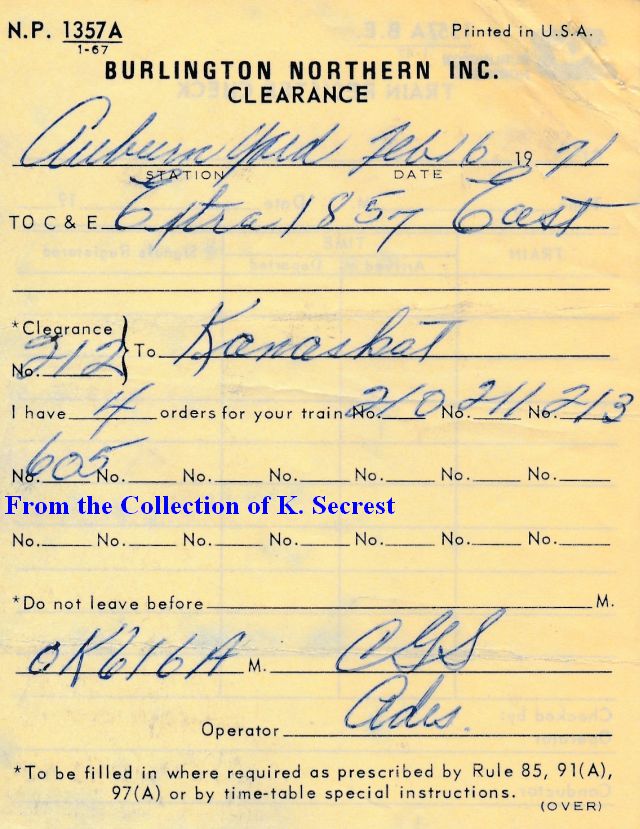 N.P. 1357A Printed in U.S.A.
1-67
BURLINGTON NORTHERN INC.
CLEARANCE
Auburn Yard Feb 16 1971
STATION DATE
TO C & E Extra 1857 East
*Clearance
No. 212 } To Kanaskat
I have 4 orders for your train No. 210 No. 211 No. 213
No. 605 No. No. No. No. No. No.
From the Collection of K. Secrest
No. No. No. No. No. No. No.
*Do not leave before M.
OK 616 A M. CGS
Operator Ades.
*To be filled in where required as prescribed by Rule 85, 91(A),
97(A) or by time-table special instructions.
(OVER)